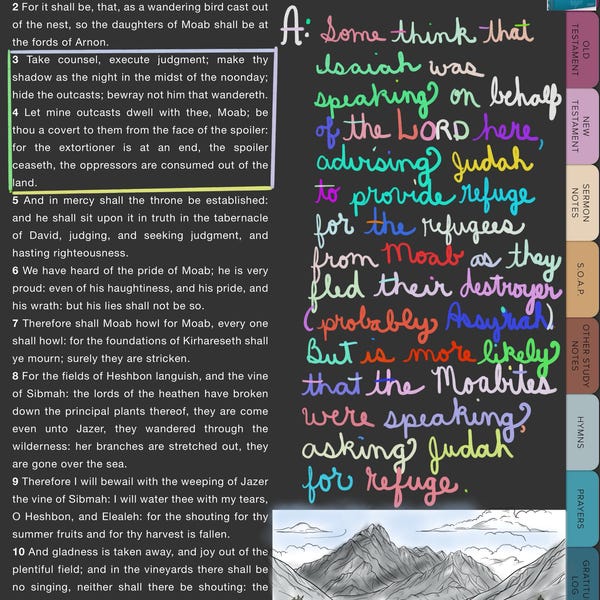 2 For it shall be, that, as a wandering bird cast out
of the nest, so the daughters of Moab shall be at
the fords of Arnon.
3 Take counsel, execute judgment; make thy
shadow as the night in the midst of the noonday;
hide the outcasts; bewray not him that wandereth.
4 Let mine outcasts dwell with thee, Moab; be
thou a covert to them from the face of the spoiler:
for the extortioner is at an end, the spoiler
ceaseth, the oppressors are consumed out of the
land.
5 And in mercy shall the throne be established:
and he shall sit upon it in truth in the tabernacle
of David, judging, and seeking judgment, and
hasting righteousness.
6 We have heard of the pride of Moab; he is very
proud: even of his haughtiness, and his pride, and
his wrath: but his lies shall not be so.
7 Therefore shall Moab howl for Moab, every one
shall howl: for the foundations of Kirhareseth shall
ye mourn; surely they are stricken.
8 For the fields of Heshbon languish, and the vine
of Sibmah: the lords of the heathen have broken
down the principal plants thereof, they are come
even unto Jazer, they wandered through the
wilderness: her branches are stretched out, they
are gone over the sea.
9 Therefore I will bewail with the weeping of Jazer
the vine of Sibmah: I will water thee with my tears,
O Heshbon, and Elealeh: for the shouting for thy
summer fruits and for thy harvest is fallen.
10 And gladness is taken away, and joy out of the
plentiful field; and in the vineyards there shall be
no singing, neither shall there be shouting: the
A: Some think that
Isaiah was
speaking on behalf
of the LORD here,
advising Judah
to provide refuge
for the refugees
from Moab as they
fled their destroyer
(probably Assyriah).
But is more likely
that the Moabites
were speaking,
asking Judah
for refuge.
OLD
TESTAMENT
NEW
TESTAMENT
SERMON
NOTES
S.O.A.P.
OTHER STUDY
NOTES
HYMNS
PRAYERS
GRATITU
LOG